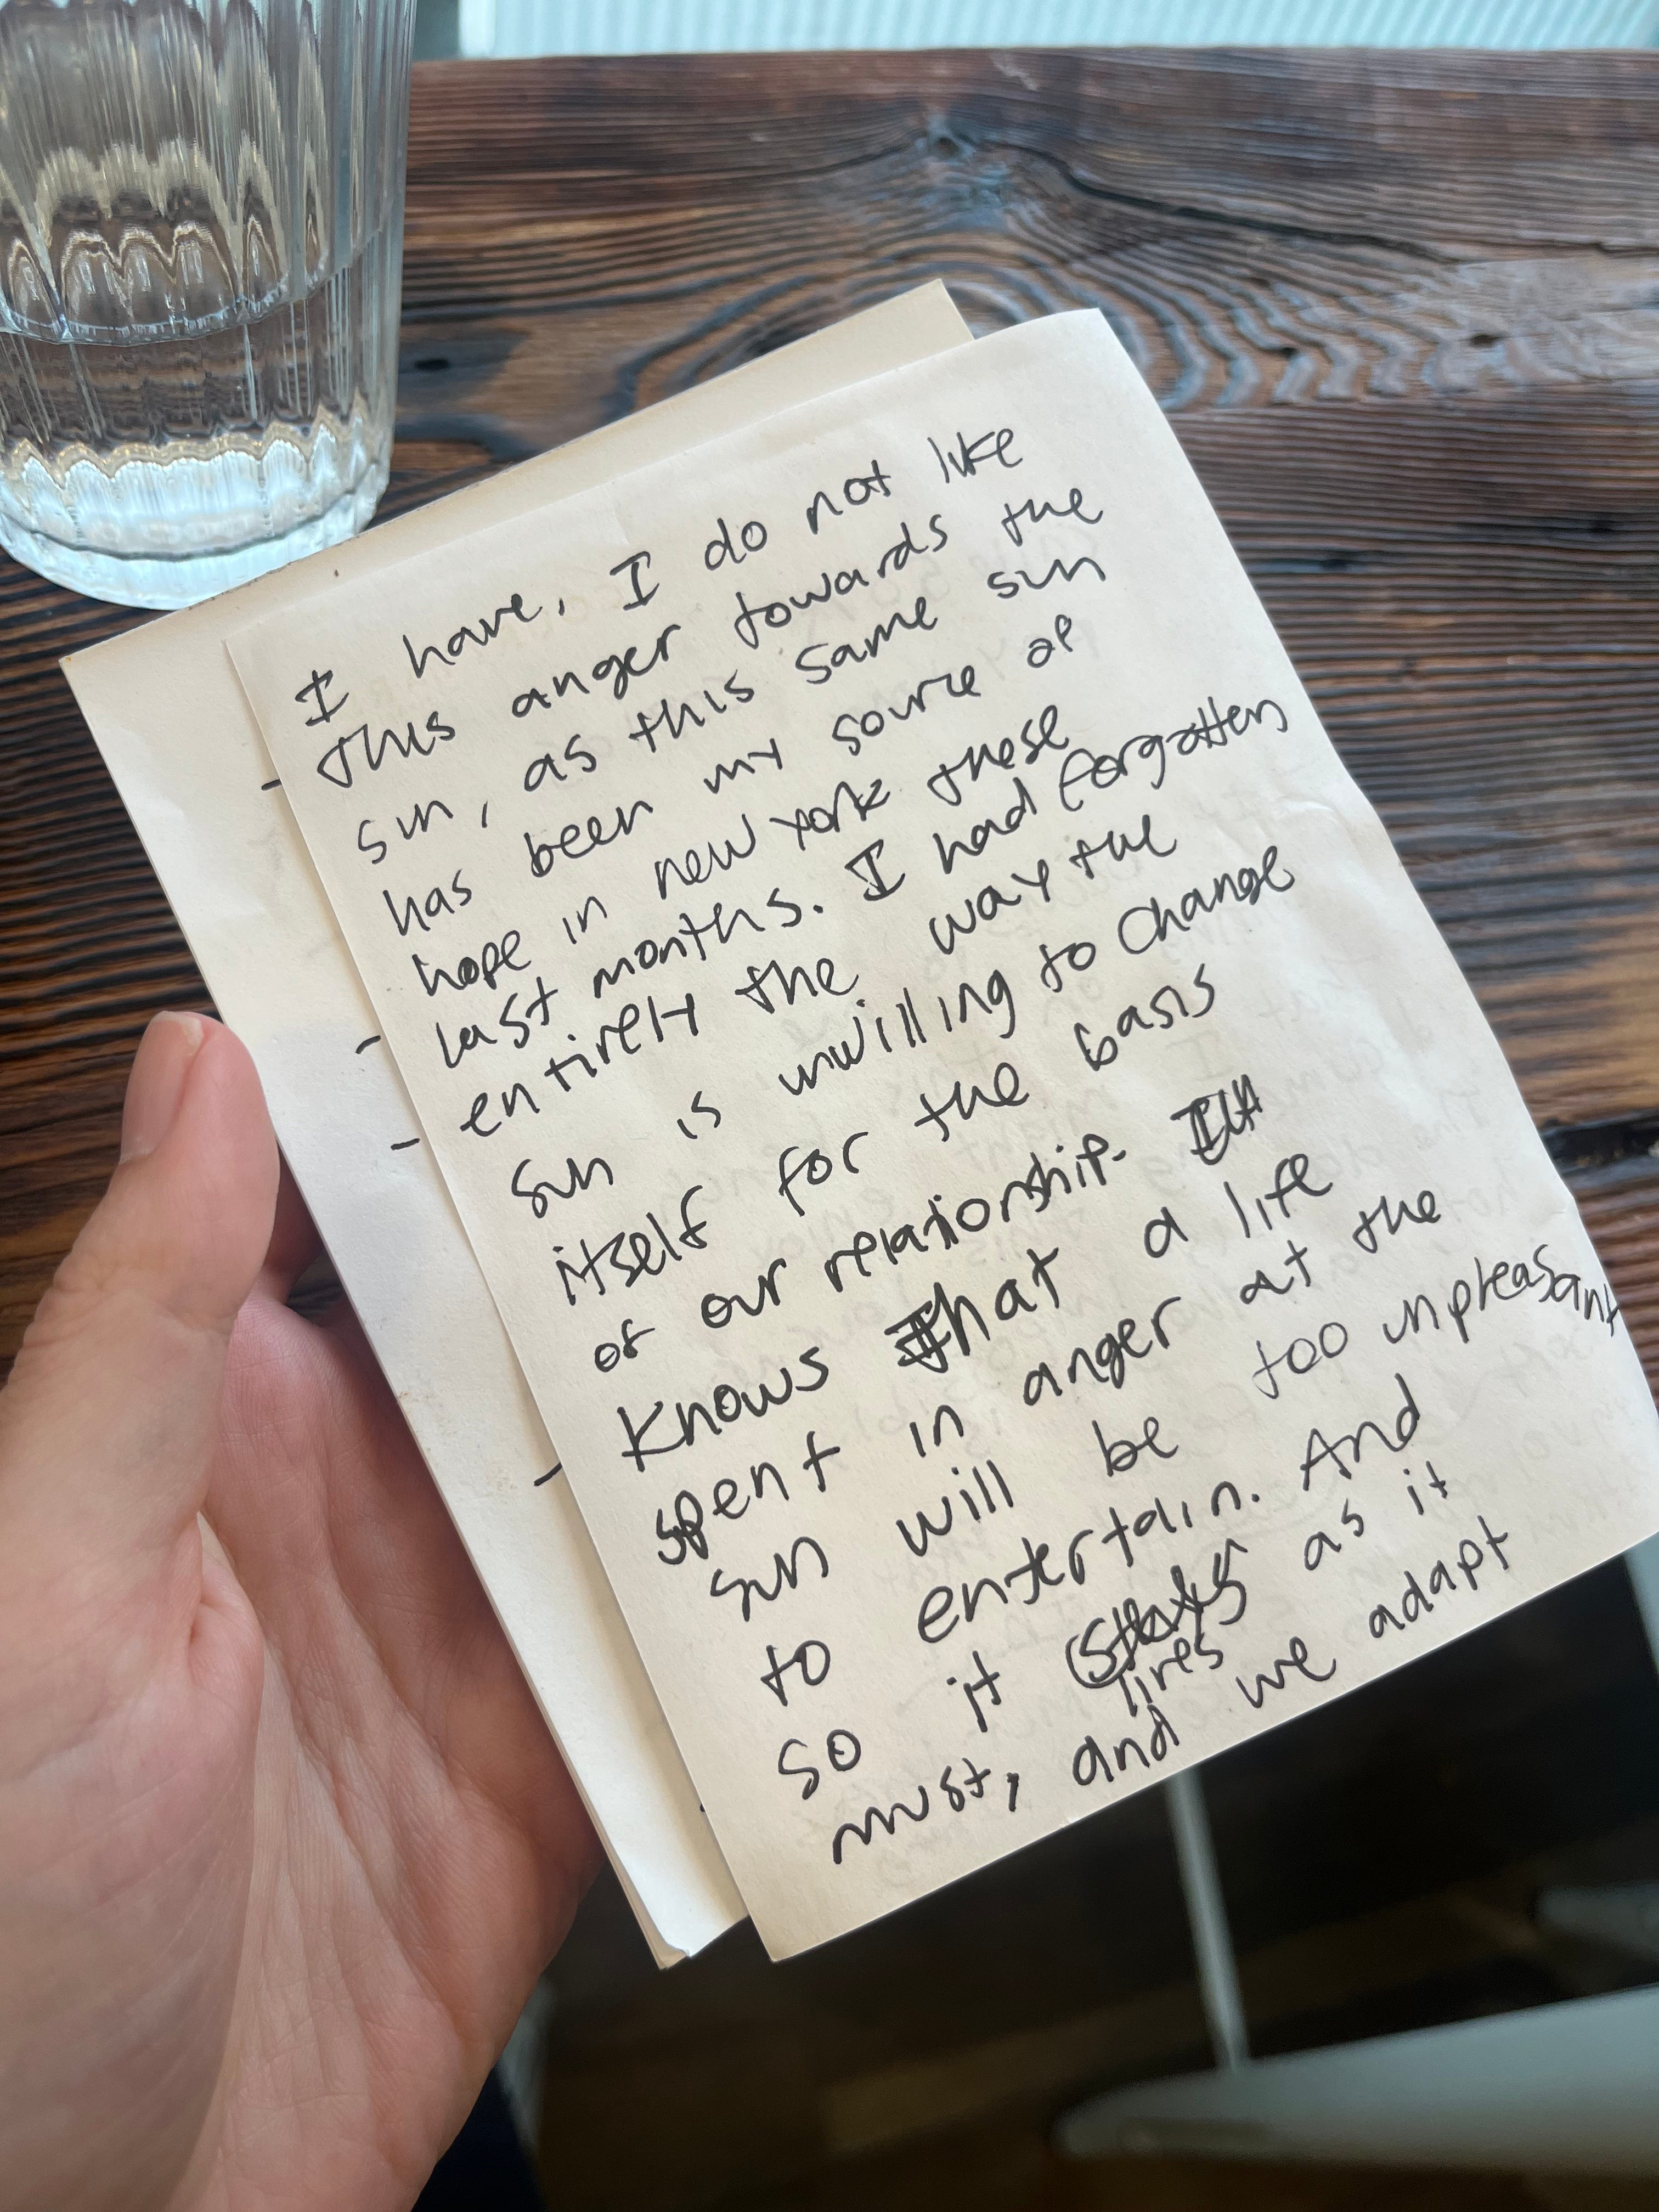 I have, I do not like
this anger towards the
sun, as this same sun
has been my source of
hope in new york these
last months. I had forgotten
entirely the way the
sun is unwilling to change
itself for the basis
of our relationship. It
knows that a life
spent in anger at the
sun will be too unpleasant
to entertain. And
so it as it
lives
must, and we adapt